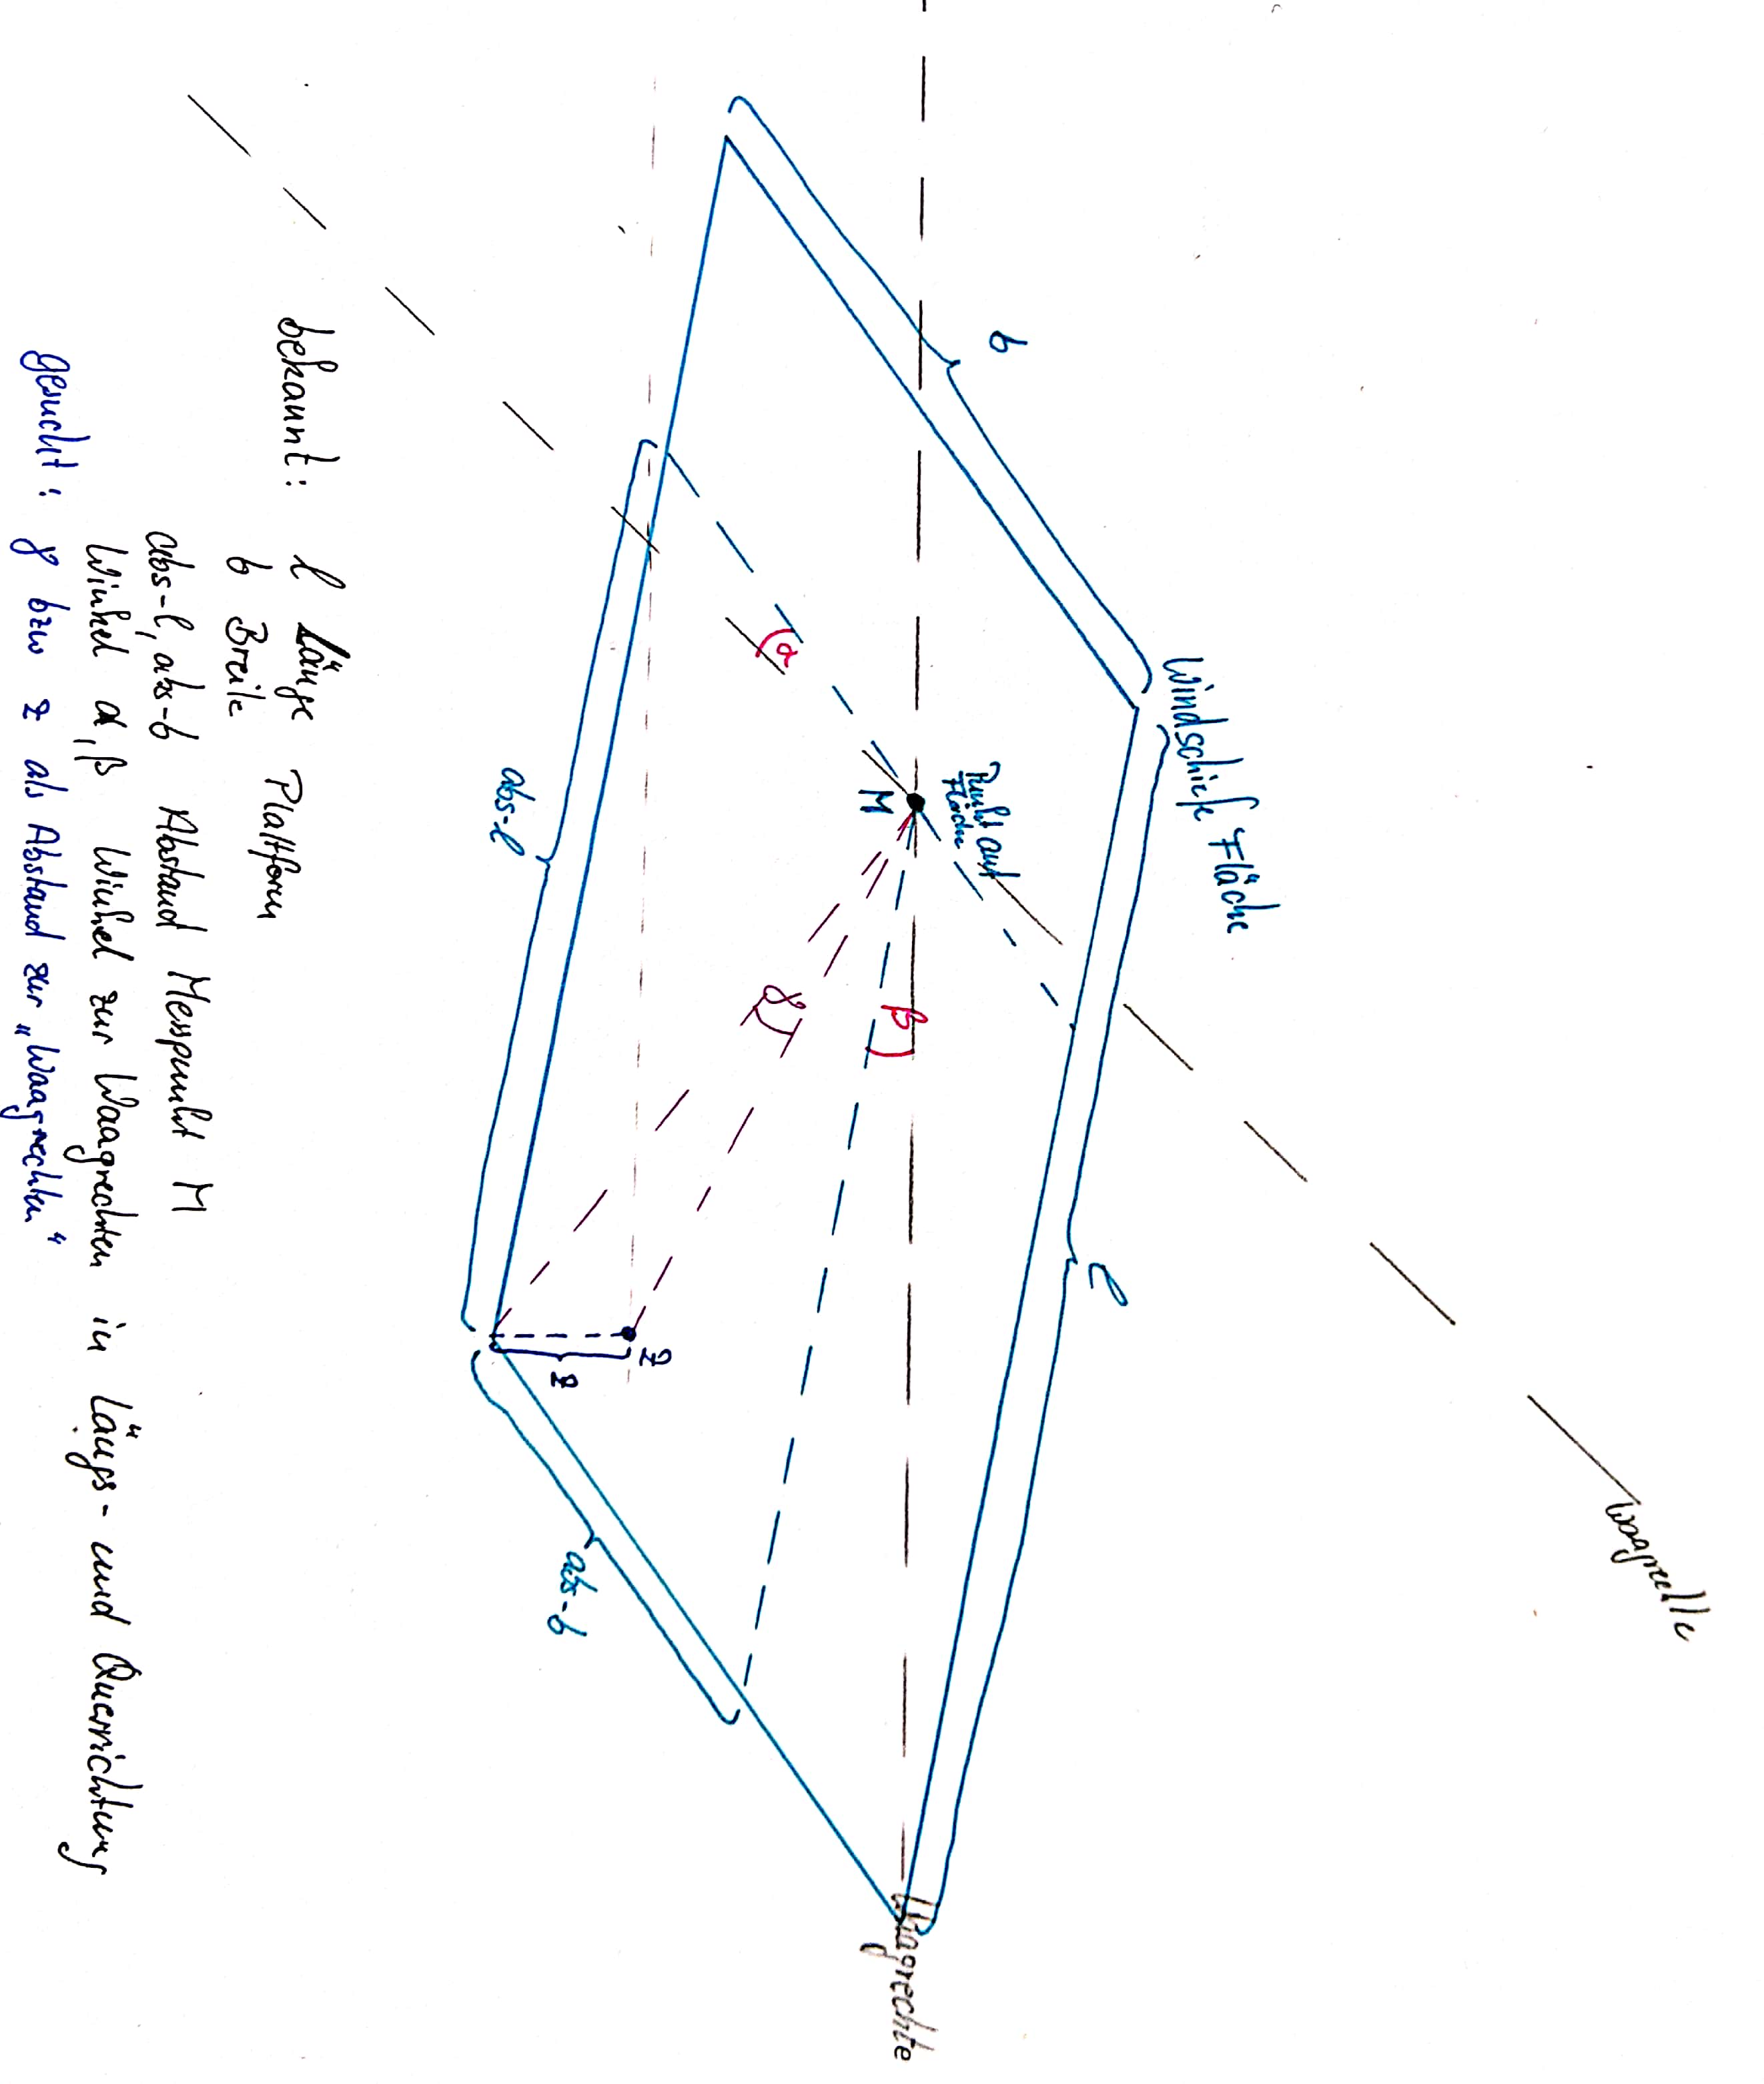 Waagrechte
Windschiefe Fläche
l
b
Punkt auf
Fläche
M
β
Waagrechte
α
γ
z
z
abs-b
abs-l
bekannt: l Länge Plattform
b Breite
abs-l, abs-b Abstand Messpunkt M
Winkel α, β Winkel zur Waagrechten in Längs- und Querrichtung
gesucht: γ bzw z als Abstand zur „Waagrechten“